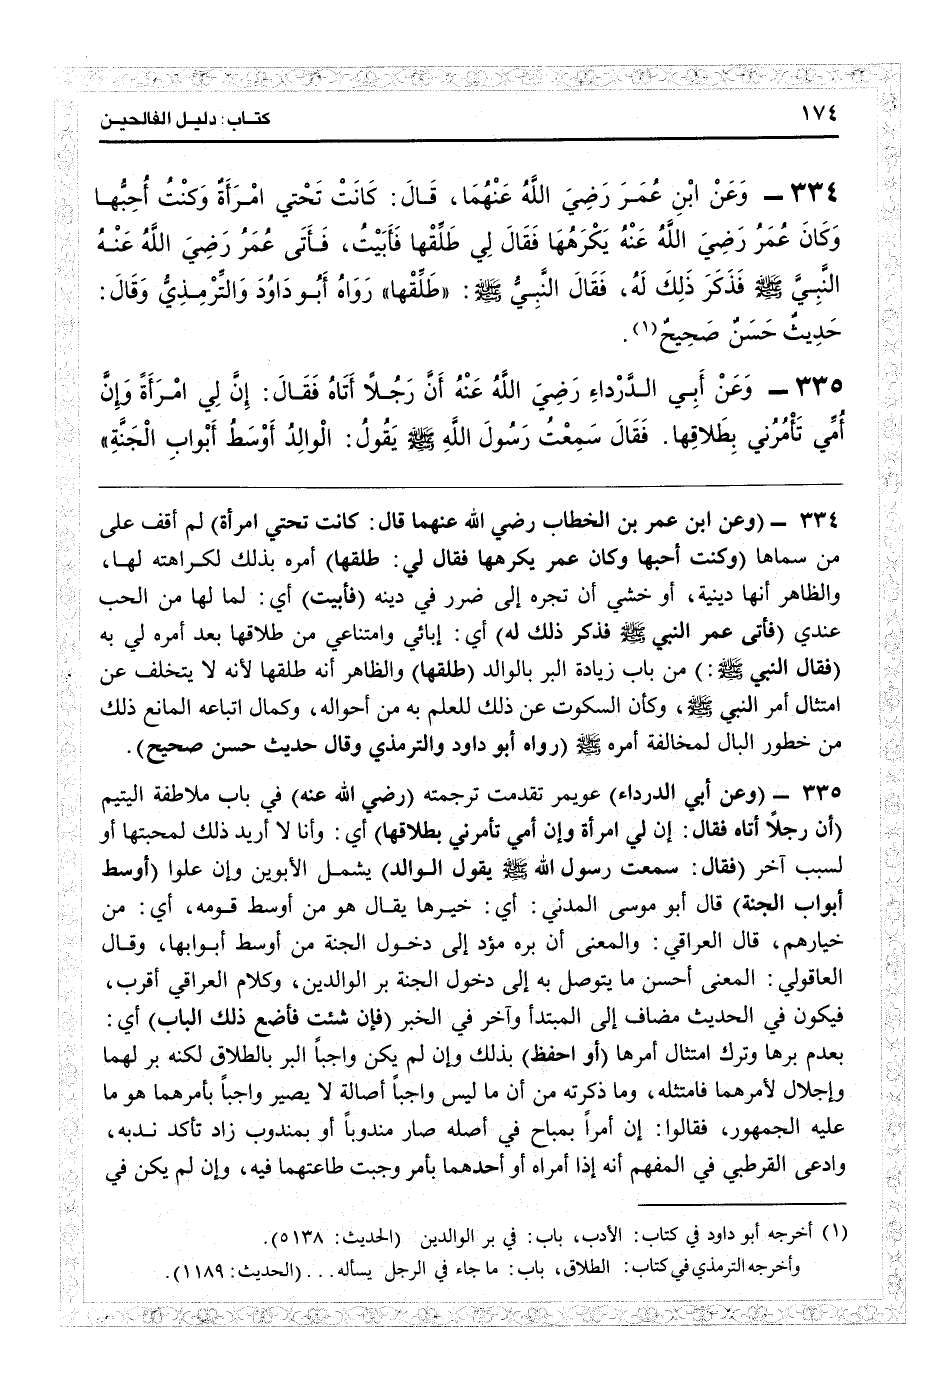 ١٧٤
كتـاب: دليـل الفالحيـن
٣٣٤ ـ وَعَنْ ابْنِ عُمَـرَ رَضِيَ اللَّهُ عَنْهُمَا، قَـالَ: كَانَتْ تَحْتي امْـرَأَةٌ وَكنْتُ أُحِبُّهـا
وَكَانَ عُمَرُ رَضِيَ اللَّهُ عَنْهُ يَكْرَهُهَا فَقَالَ لِي طَلِّقْها فَأَبَيْتُ، فَـأَتَى عُمَرُ رَضِيَ اللَّهُ عَنْـهُ
النَّبِـيَّ ﷺ فَذَكَرَ ذَلِكَ لَهُ، فَقَالَ النَّبِـيُّ ﷺ: «طَلِّقْها» رَوَاهُ أَبُـو دَاوُدَ وَالتِّرْمِـذِيُّ وَقَالَ:
حَدِيثٌ حَسَنٌ صَحِيحٌ(١).
٣٣٥ ـ وَعَنْ أَبِـي الـدَّرْدَاءِ رَضِيَ اللَّهُ عَنْهُ أَنَّ رَجُـلًا أَتَاهُ فَقَـالَ: إِنَّ لِي امْـرَأَةً وَإِنَّ
أُمِّي تَأْمُرُنِي بِطَلَاقِها. فَقَالَ سَمِعْتُ رَسُولَ اللَّهِ ﷺ يَقُولُ: الْوالِدُ أَوْسَطُ أَبْوابِ الْجَنَّةِ»
٣٣٤ ـ (وعن ابن عمر بن الخطاب رضي الله عنهما قال: كانت تحتي امرأة) لم أقف على
من سماها (وكنت أحبها وكان عمر يكرهها فقال لي: طلقها) أمره بذلك لكـراهته لهـا،
والظاهر أنها دينية، أو خشي أن تجره إلى ضرر في دينه (فأبيت) أي: لما لها من الحب
عندي (فأتى عمر النبي ﷺ فذكر ذلك له) أي: إبائي وامتناعي من طلاقها بعد أمره لي به
(فقال النبي ﷺ:) من باب زيادة البر بالوالد (طلقها) والظاهر أنه طلقها لأنه لا يتخلف عن
امتثال أمر النبي ﷺ، وكأن السكوت عن ذلك للعلم به من أحواله، وكمال اتباعه المانع ذلك
من خطور البال لمخالفة أمره ﷺ (رواه أبو داود والترمذي وقال حديث حسن صحيح).
٣٣٥ ـ (وعن أبي الدرداء) عويمر تقدمت ترجمته (رضي الله عنه) في باب ملاطفة اليتيم
(أن رجلاً أتاه فقال: إن لي امرأة وإن أمي تأمرني بطلاقها) أي: وأنا لا أريد ذلك لمحبتها أو
لسبب آخر (فقال: سمعت رسول الله ﷺ يقول الـوالد) يشمـل الأبوين وإن علوا (أوسط
أبواب الجنة) قال أبو موسى المدني: أي: خيـرها يقـال هو من أوسط قـومه، أي: من
خيارهم، قال العراقي: والمعنى أن بره مؤد إلى دخـول الجنة من أوسط أبـوابها، وقـال
العاقولي: المعنى أحسن ما يتوصل به إلى دخول الجنة بر الوالدين، وكلام العراقي أقرب،
فيكون في الحديث مضاف إلى المبتدأ وآخر في الخبر (فإن شئت فأضع ذلك الباب) أي:
بعدم برها وترك امتثال أمرها (أو احفظ) بذلك وإن لم يكن واجباً البر بالطلاق لكنه بر لهما
وإجلال لأمرهما فامتثله، وما ذكرته من أن ما ليس واجباً أصالة لا يصير واجباً بأمرهما هو ما
عليه الجمهور، فقالوا: إن أمراً بمباح في أصله صار مندوباً أو بمندوب زاد تأكد نـدبه،
وادعى القرطبي في المفهم أنه إذا أمراه أو أحدهما بأمر وجبت طاعتهما فيه، وإن لم يكن في
(١) أخرجه أبو داود في كتاب: الأدب، باب: في بر الوالدين (الحديث: ٥١٣٨).
وأخرجه الترمذي في كتاب: الطلاق، باب: ما جاء في الرجل يسأله... (الحديث: ١١٨٩).